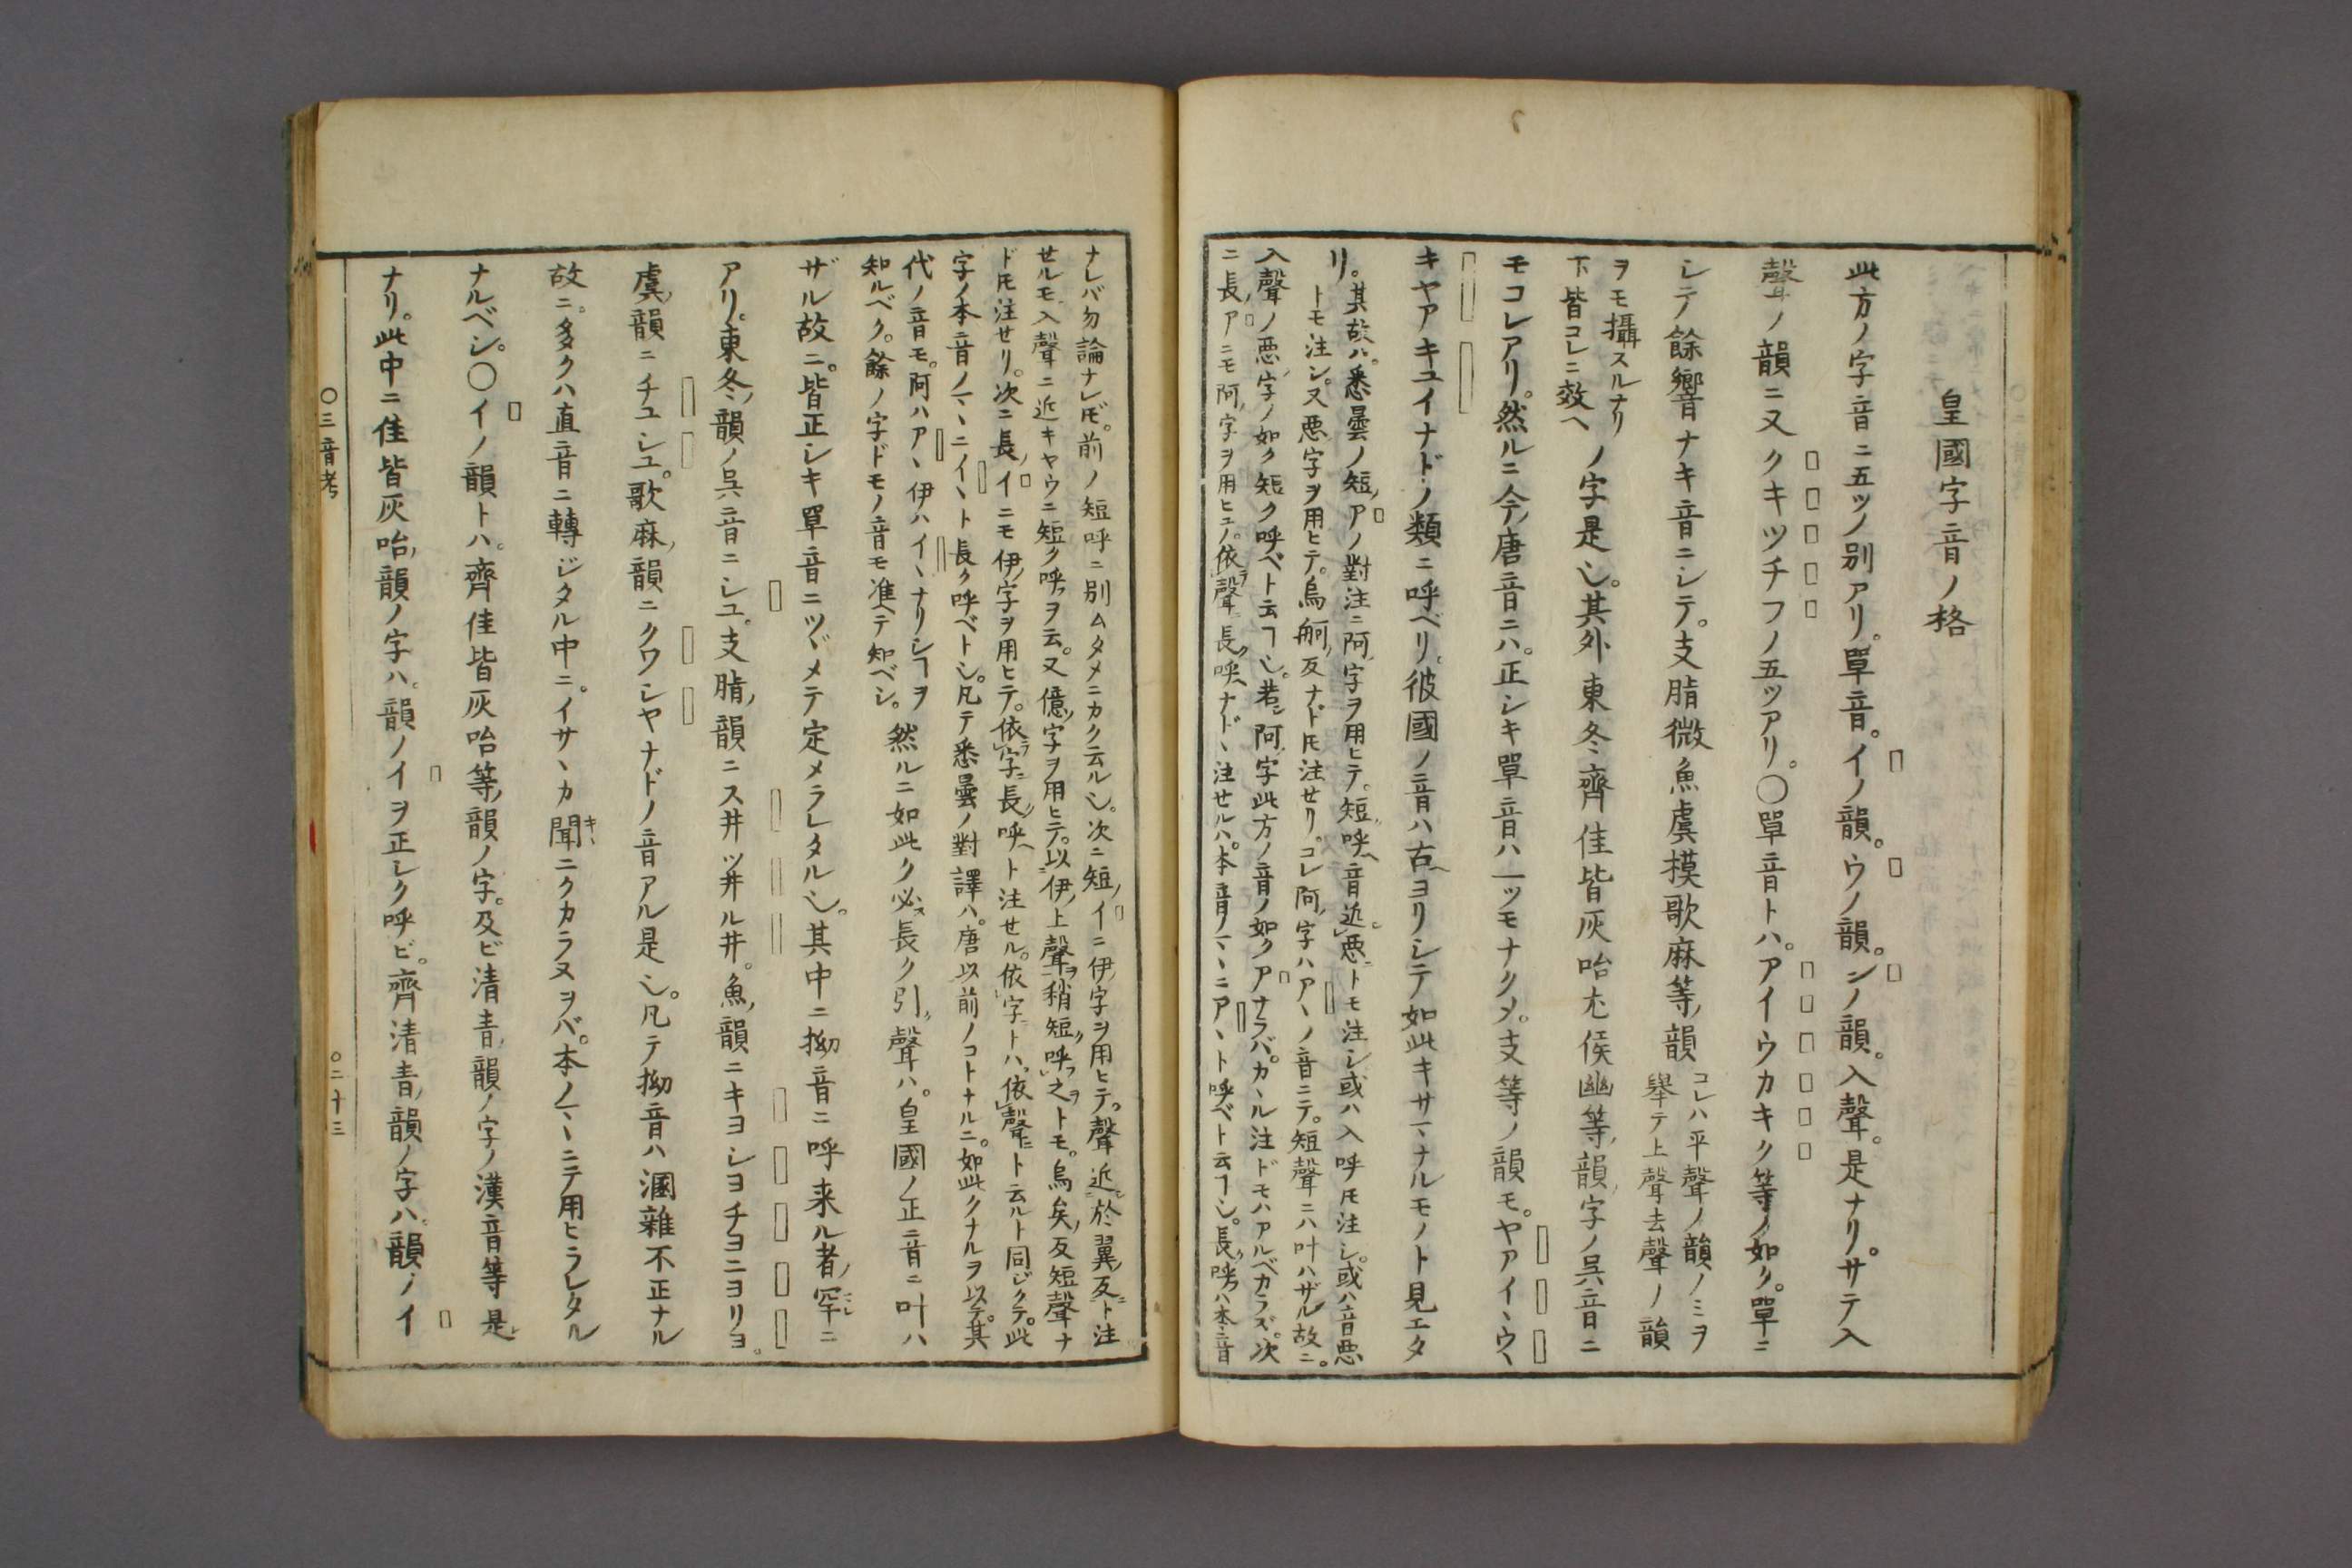 皇國字音ノ格
此方ノ字音ニ五ツノ別アリ。單音。イノ韻。ウノ韻。ンノ韻。入聲。是ナリ。サテ入
聲ノ韻ニ又クキツチフノ五ツアリ。〇單音トハ。アイウカキク等ノ如ク。單ニ
シテ餘響ナキ音ニシテ。支脂微魚虞模歌麻等ノ韻
コレハ平聲ノ韻ノミヲ
舉テ上聲去聲ノ韻
ヲモ攝スルナリ
下皆コレニ效ヘ
ノ字是也。其外東冬齊佳皆灰咍尤侯幽等ノ韻ノ字ノ呉音ニ
モコレアリ。然ルニ今ノ唐音ニハ。正シキ單音ハ一ツモナクメ。支等ノ韻モ。ヤアイヽウヽ
キヤアキユイナドノ類ニ呼ベリ。彼國ノ音ハ古ヘヨリシテ如此キサマナルモノト見エタ
リ。
其故ハ。悉曇ノ短ノアノ對注ニ阿ノ字ヲ用ヒテ。短ク呼ヘ音近シ惡ニトモ注シ或ハ入呼トモ注シ。或ハ音惡
トモ注シ。又惡字ヲ用ヒテ。烏舸ノ反ナドトモ注セリ。コレ阿ノ字ハアヽノ音ニテ。短聲ニハ叶ハザル故ニ。
入聲ノ惡ノ字ノ如ク短ク呼ベト云コ也。若シ阿ノ字此方ノ音ノ如クアナラバ。カヽル注ドモハアルベカラズ。次
ニ長ノアニモ阿ノ字ヲ用ヒテ。依テ聲ニ長ク呼ヘナドヽ注セルハ。本音ノマヽニアヽト呼ベト云コ也。長ク呼フハ本音
ナレバ勿論ナレトモ。前ノ短呼ニ別ムタメニカク云ル也。次ニ短ノイニ伊ノ字ヲ用ヒテ。聲近シ於翼ノ反ニト注
セルモ入聲ニ近キヤウニ短ク呼ヲ云。又億ノ字ヲ用ヒテ。以伊ノ上聲ヲ稍短ク呼フ之ヲトモ。烏矣ノ反短聲ナ
ドトモ注セリ。次ニ長ノイニモ伊ノ字ヲ用ヒテ。依テ字ニ長ク呼ヘト注セル。依字トハ。依聲ニト云ルト同ジクテ。此
字ノ本音ノマヽニイヽト長ク呼ベト也。凡テ悉曇ノ對譯ハ。唐以前ノコトナルニ。如此クナルヲ以テ。其
代ノ音モ。阿ハアヽ伊ハイヽナリシコヲ
知ルベク。餘ノ字ドモノ音モ准ヘテ知ベシ。
然ルニ如此ク必ス長ク引ク聲ハ。皇國ノ正音ニ叶ハ
ザル故ニ。皆正シキ單音ニツヾメテ定メラレタル也。其中ニ拗音ニ呼来ル者ノ罕ニ
アリ。東冬ノ韻ノ呉音ニシユ。支脂ノ韻ニス井ツ井ル井。魚ノ韻ニキヨシヨチヨニヨリヨ。
虞ノ韻ニチユシユ。歌麻ノ韻ニクワシヤナドノ音アル是也。凡テ拗音ハ溷雜不正ナル
故ニ。多クハ直音ニ轉ジタル中ニ。イサヽカ聞キヽニクカラヌヲバ。本ノマヽニテ用ヒラレタル
ナルベシ。〇イノ韻トハ。齊佳皆灰咍等ノ韻ノ字。及ビ清青ノ韻ノ字ノ漢音等是
ナリ。此中ニ佳皆灰咍ノ韻ノ字ハ。韻ノイヲ正シク呼ビ。齊清青ノ韻ノ字ハ。韻ノイ
〇三音考
〇二十三